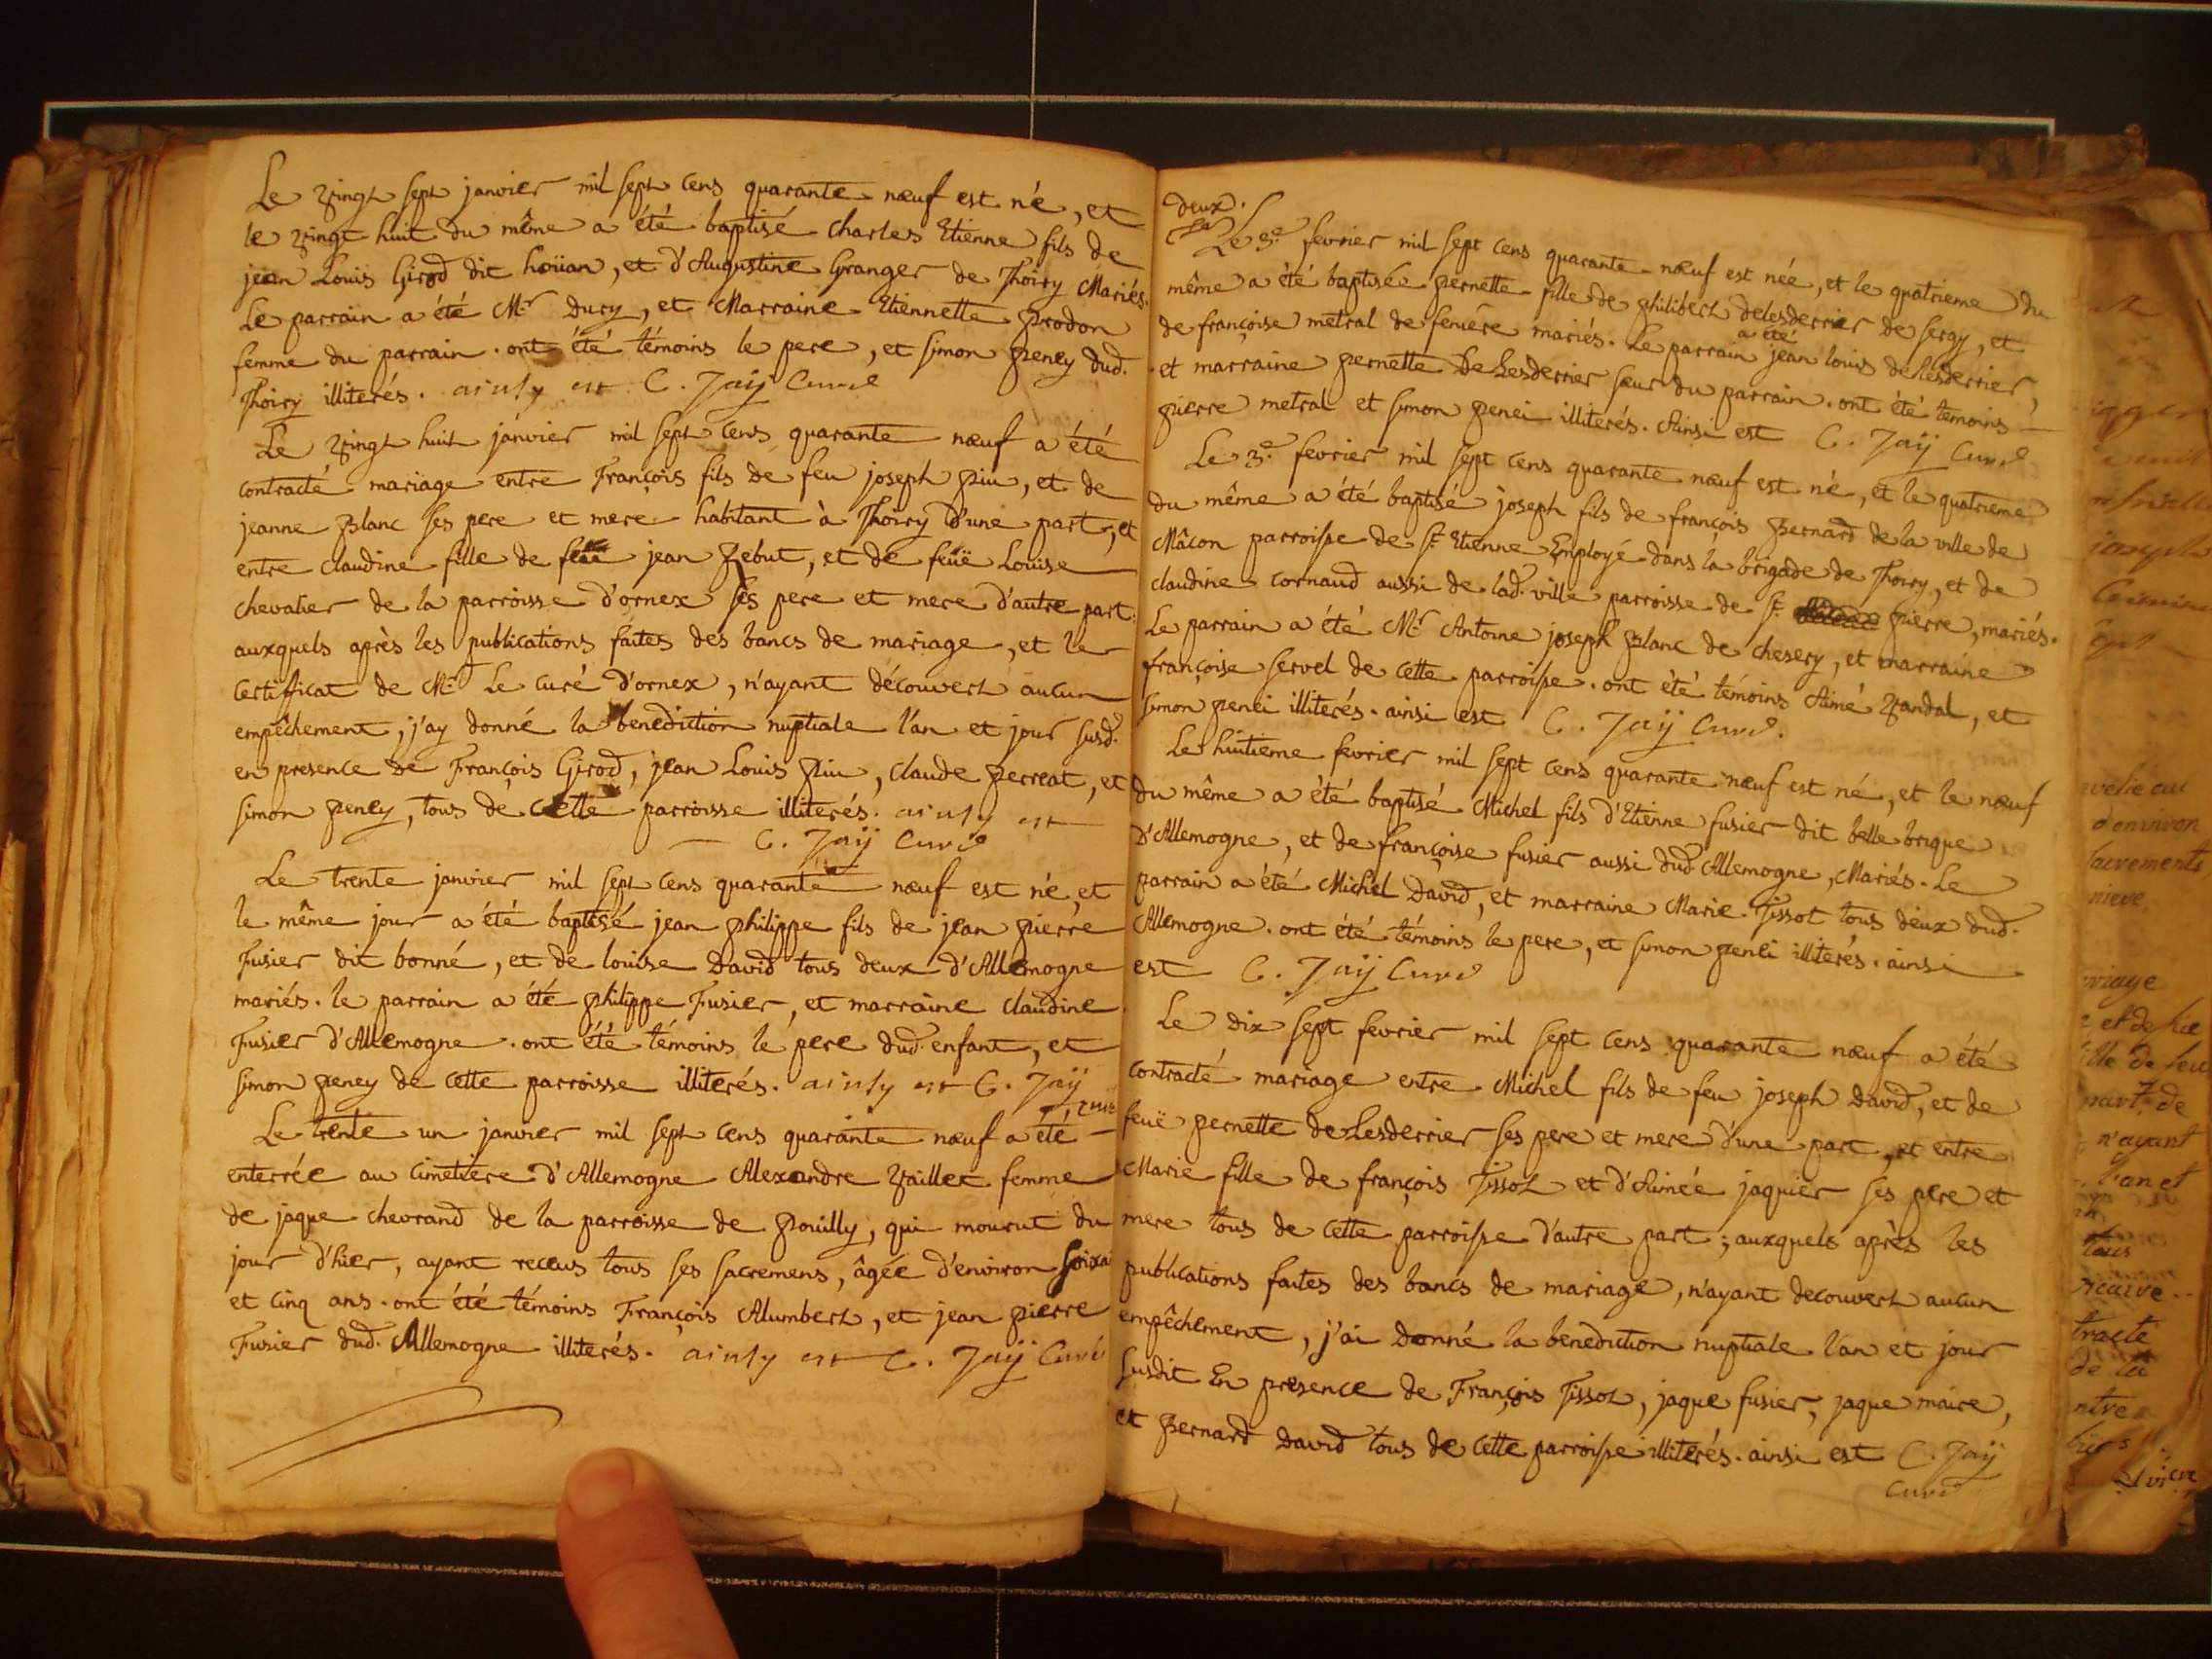 Le vingt sept janvier mil sept cens quarante nœuf est né, et
le vingt huit du même a été baptisé Charles Etienne fils de
jean Louis Girod dit hoüan, et d'Augustine Granger de Thoiry Mariés.
Le parrain a été Mr Dury, et Marraine Etiennette Prodon
femme du parrain. ont été témoins le pere, et simon peney dud.
Thoiry illiterés. ainsy est C. Jaÿ Curé
Le vingt huit janvier mil sept cens quarante nœuf a été
contracté mariage entre François fils de feu joseph Piu, et de
jeanne Blanc ses pere et mere habitant à Thoiry d'une part, et
entre claudine fille de feu jean Zebut, et de feüe Louise
chevalier de la parroisse d'ornex ses pere et mere d'autre part:
auxquels après les publications faites des bancs de mariage, et le
certifficat de Mr Le curé d'ornex, n'ayant découvert aucun
empêchement, j'ay donné la benediction nuptiale l'an et jour susd.
en presence de François Girod, jean Louis Piu, claude perreat, et
simon peney, tous de cette parroisse illiterés. ainsy est
C. Jaÿ Curé
Le trente janvier mil sept cens quarante nœuf est né, et
le même jour a été baptisé jean philippe fils de jean pierre
Fusier dit bonné, et de louise David tous deux d'Allemogne
mariés. le parrain a été philippe Fusier, et marraine claudine
Fusier d'Allemogne. ont été témoins le pere dud. enfant, et
simon peney de cette parroisse illiterés. ainsy est C. Jaÿ
curé
Le trente un janvier mil sept cens quarante nœuf a été
enterrée au cimetière d'Allemogne Alexandre Vaillet femme
de jaque chevrand de la parroisse de Pouilly, qui mourut du
jour d'hier, ayant receus tous ses sacremens, âgée d'environ soixa
et cinq ans. ont été témoins François Alumbert, et jean pierre
Fusier dud. Allemogne illiterés. ainsy est C. Jaÿ Curé
deux.
Le 3e fevrier mil sept cens quarante nœuf est née, et le quatrieme du
même a été baptisée pernette fille de philibert delesderrier de sergy, et
a été
de françoise metral de feniére mariés. Le parrain jean louis delesderrier,
et marraine pernette De Lesderrier sœur du parrain. ont été temoins
pierre metral et simon penei illiterés. Ainsi est C. Jaÿ Curé
Le 3e fevrier mil sept cens quarante nœuf est né, et le quatrieme
du même a été baptisé joseph fils de françois Bernard de la ville de
Mâcon parroisse de St Etienne Employé dans la brigade de Thoiry, et de
claudine cornaud aussi de lad. ville parroisse de St pierre, mariés.
Le parrain a été Mr Antoine joseph Blanc de chesery, et marraine
françoise servel de cette parroisse. ont été témoins Aimé Vandal, et
simon penei illiterés. ainsi est C. Jaÿ Curé.
Le huitieme fevrier mil sept cens quarante nœuf est né, et le nœuf
du même a été baptisé Michel fils d'Etienne fusier dit belle brique
D'Allemogne, et de françoise fusier aussi dud. Allemogne, Mariés. Le
parrain a été Michel David, et marraine Marie Tissot tous deux dud.
Allemogne. ont été témoins le pere, et simon penei illiterés. ainsi
est C. Jaÿ Curé
Le dix sept fevrier mil sept cens quarante nœuf a été
contracté mariage entre Michel fils de feu joseph David, et de
feuë pernette de Lesderrier ses pere et mere d'une part, et entre
Marie fille de françois Tissot et d'Aimée jaquier ses pere et
mere tous de cette parroisse d'autre part; auxquels après les
publications faites des bancs de mariage, n'ayant decouvert aucun
empêchement, j'ai donné la benediction nuptiale l'an et jour
susdit En presence de François Tissot, jaque fusier, jaque maire,
et Bernard David tous de cette parroisse illiterés. ainsi est C. Jaÿ
Curé